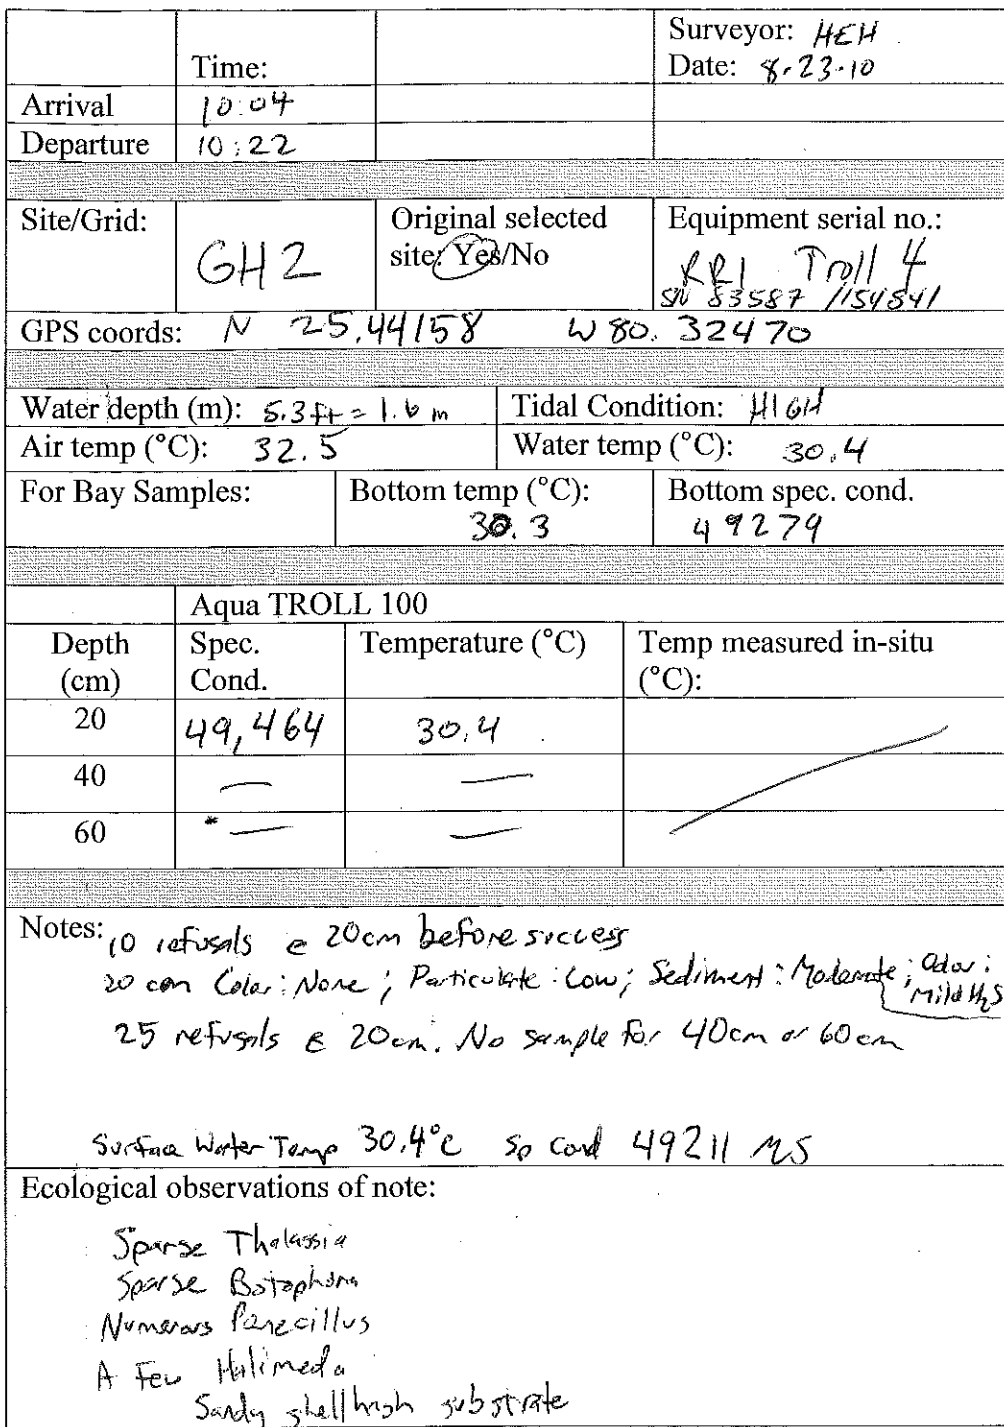 Surveyor: HEH
Time:
Date: 8.23.10
Arrival 10:04
Departure 10:22
Site/Grid: GH2
Original selected site: Yes/No
Equipment serial no.: RR1 Troll 4
SN 83587 /154841
GPS coords: N 25.44158 W 80.32470
Water depth (m): 5.3 ft = 1.6 m Tidal Condition: HIGH
Air temp (°C): 32.5 Water temp (°C): 30.4
For Bay Samples: Bottom temp (°C): 30.3 Bottom spec. cond. 49279
Aqua TROLL 100
Depth (cm) Spec. Cond. Temperature (°C) Temp measured in-situ (°C):
20 49,464 30.4
40 — —
60 * — —
Notes: 10 refusals @ 20cm before success
20 cm Color: None; Particulate: Low; Sediment: Moderate; Odor: Mild H2S
25 refusals @ 20cm. No sample for 40cm or 60cm
Surface Water Temp 30.4°C Sp Cond 49211 MS
Ecological observations of note:
Sparse Thalassia
Sparse Batophora
Numerous Penecillus
A Few Halimeda
Sandy substrate